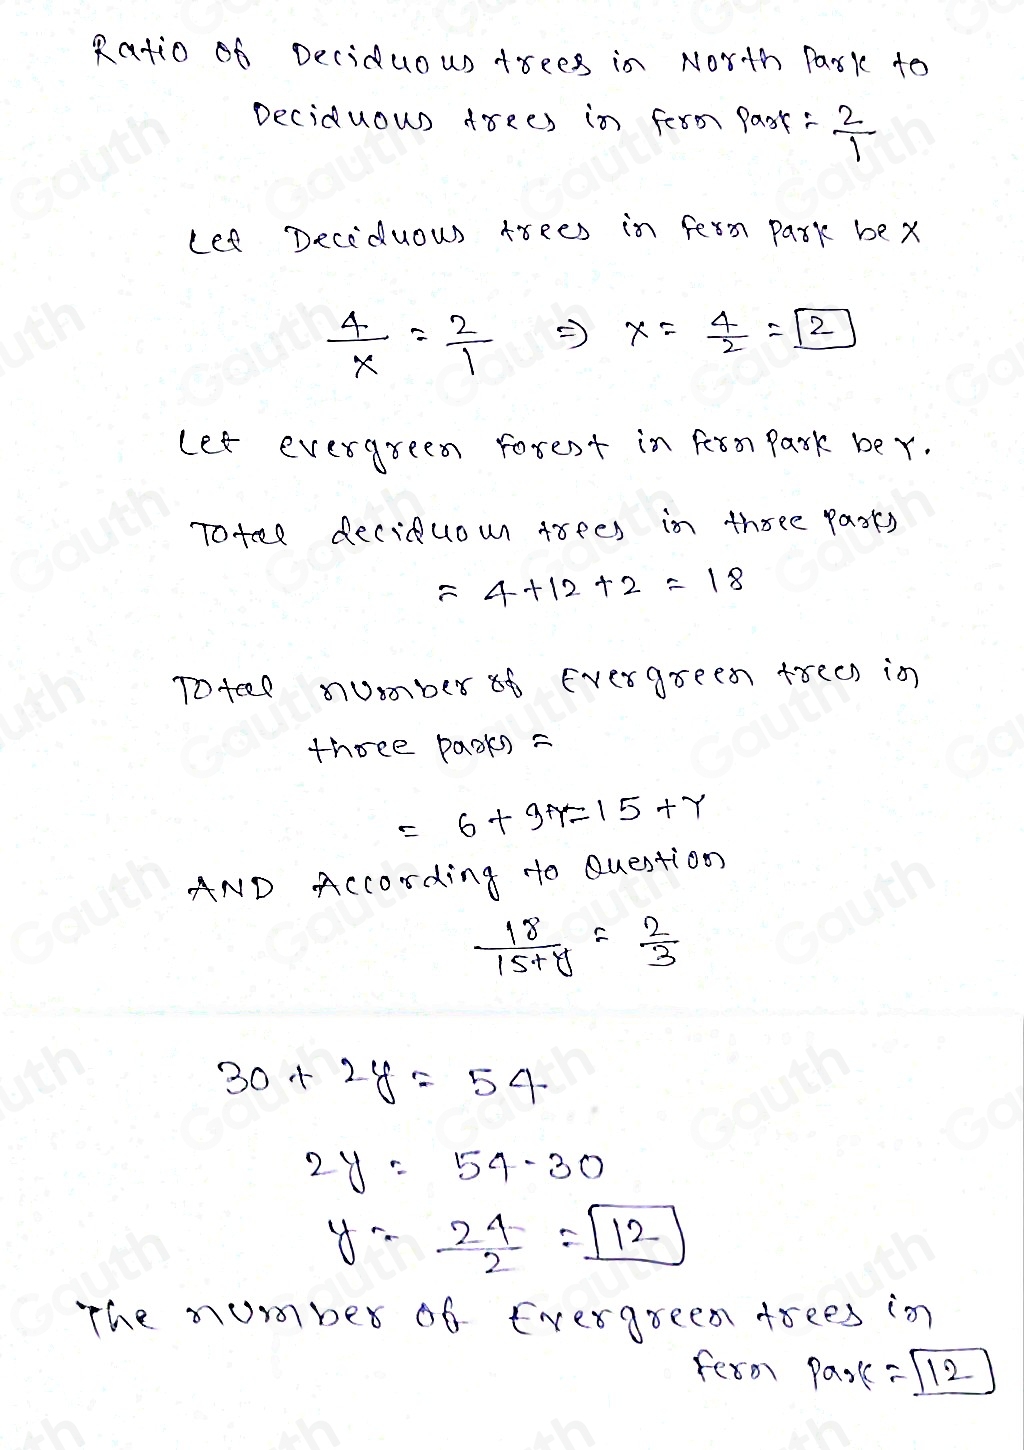 Ratio of Deciduous trees in North Park to
Deciduous trees in fern park = 2/1
Let Deciduous trees in fern park be x
4/x = 2/1 => x = 4/2 = 2
Let evergreen forest in fern park be Y.
Total deciduous trees in three parks
= 4+12+2 = 18
Total number of Evergreen trees in
three parks =
= 6+9+Y=15+Y
AND According to Question
18/15+y = 2/3
30 + 2y = 54
2y = 54-30
y = 24/2 = 12
The number of Evergreen trees in
fern park = 12